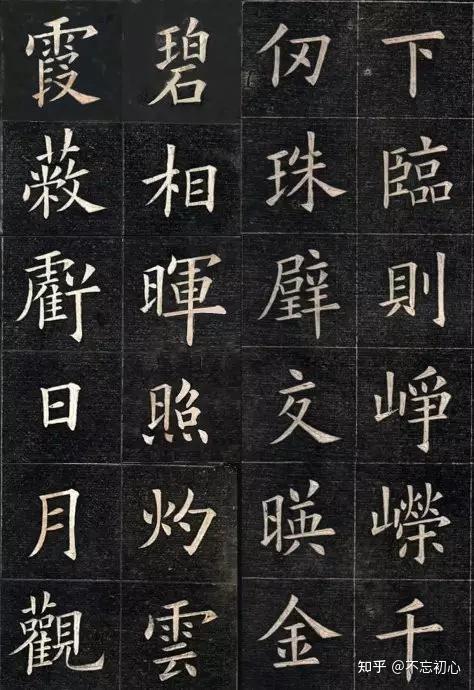 下臨則崢嶸千
仞珠壁交暎金
碧相暉照灼雲
霞蔽虧日月觀
知乎 @不忘初心